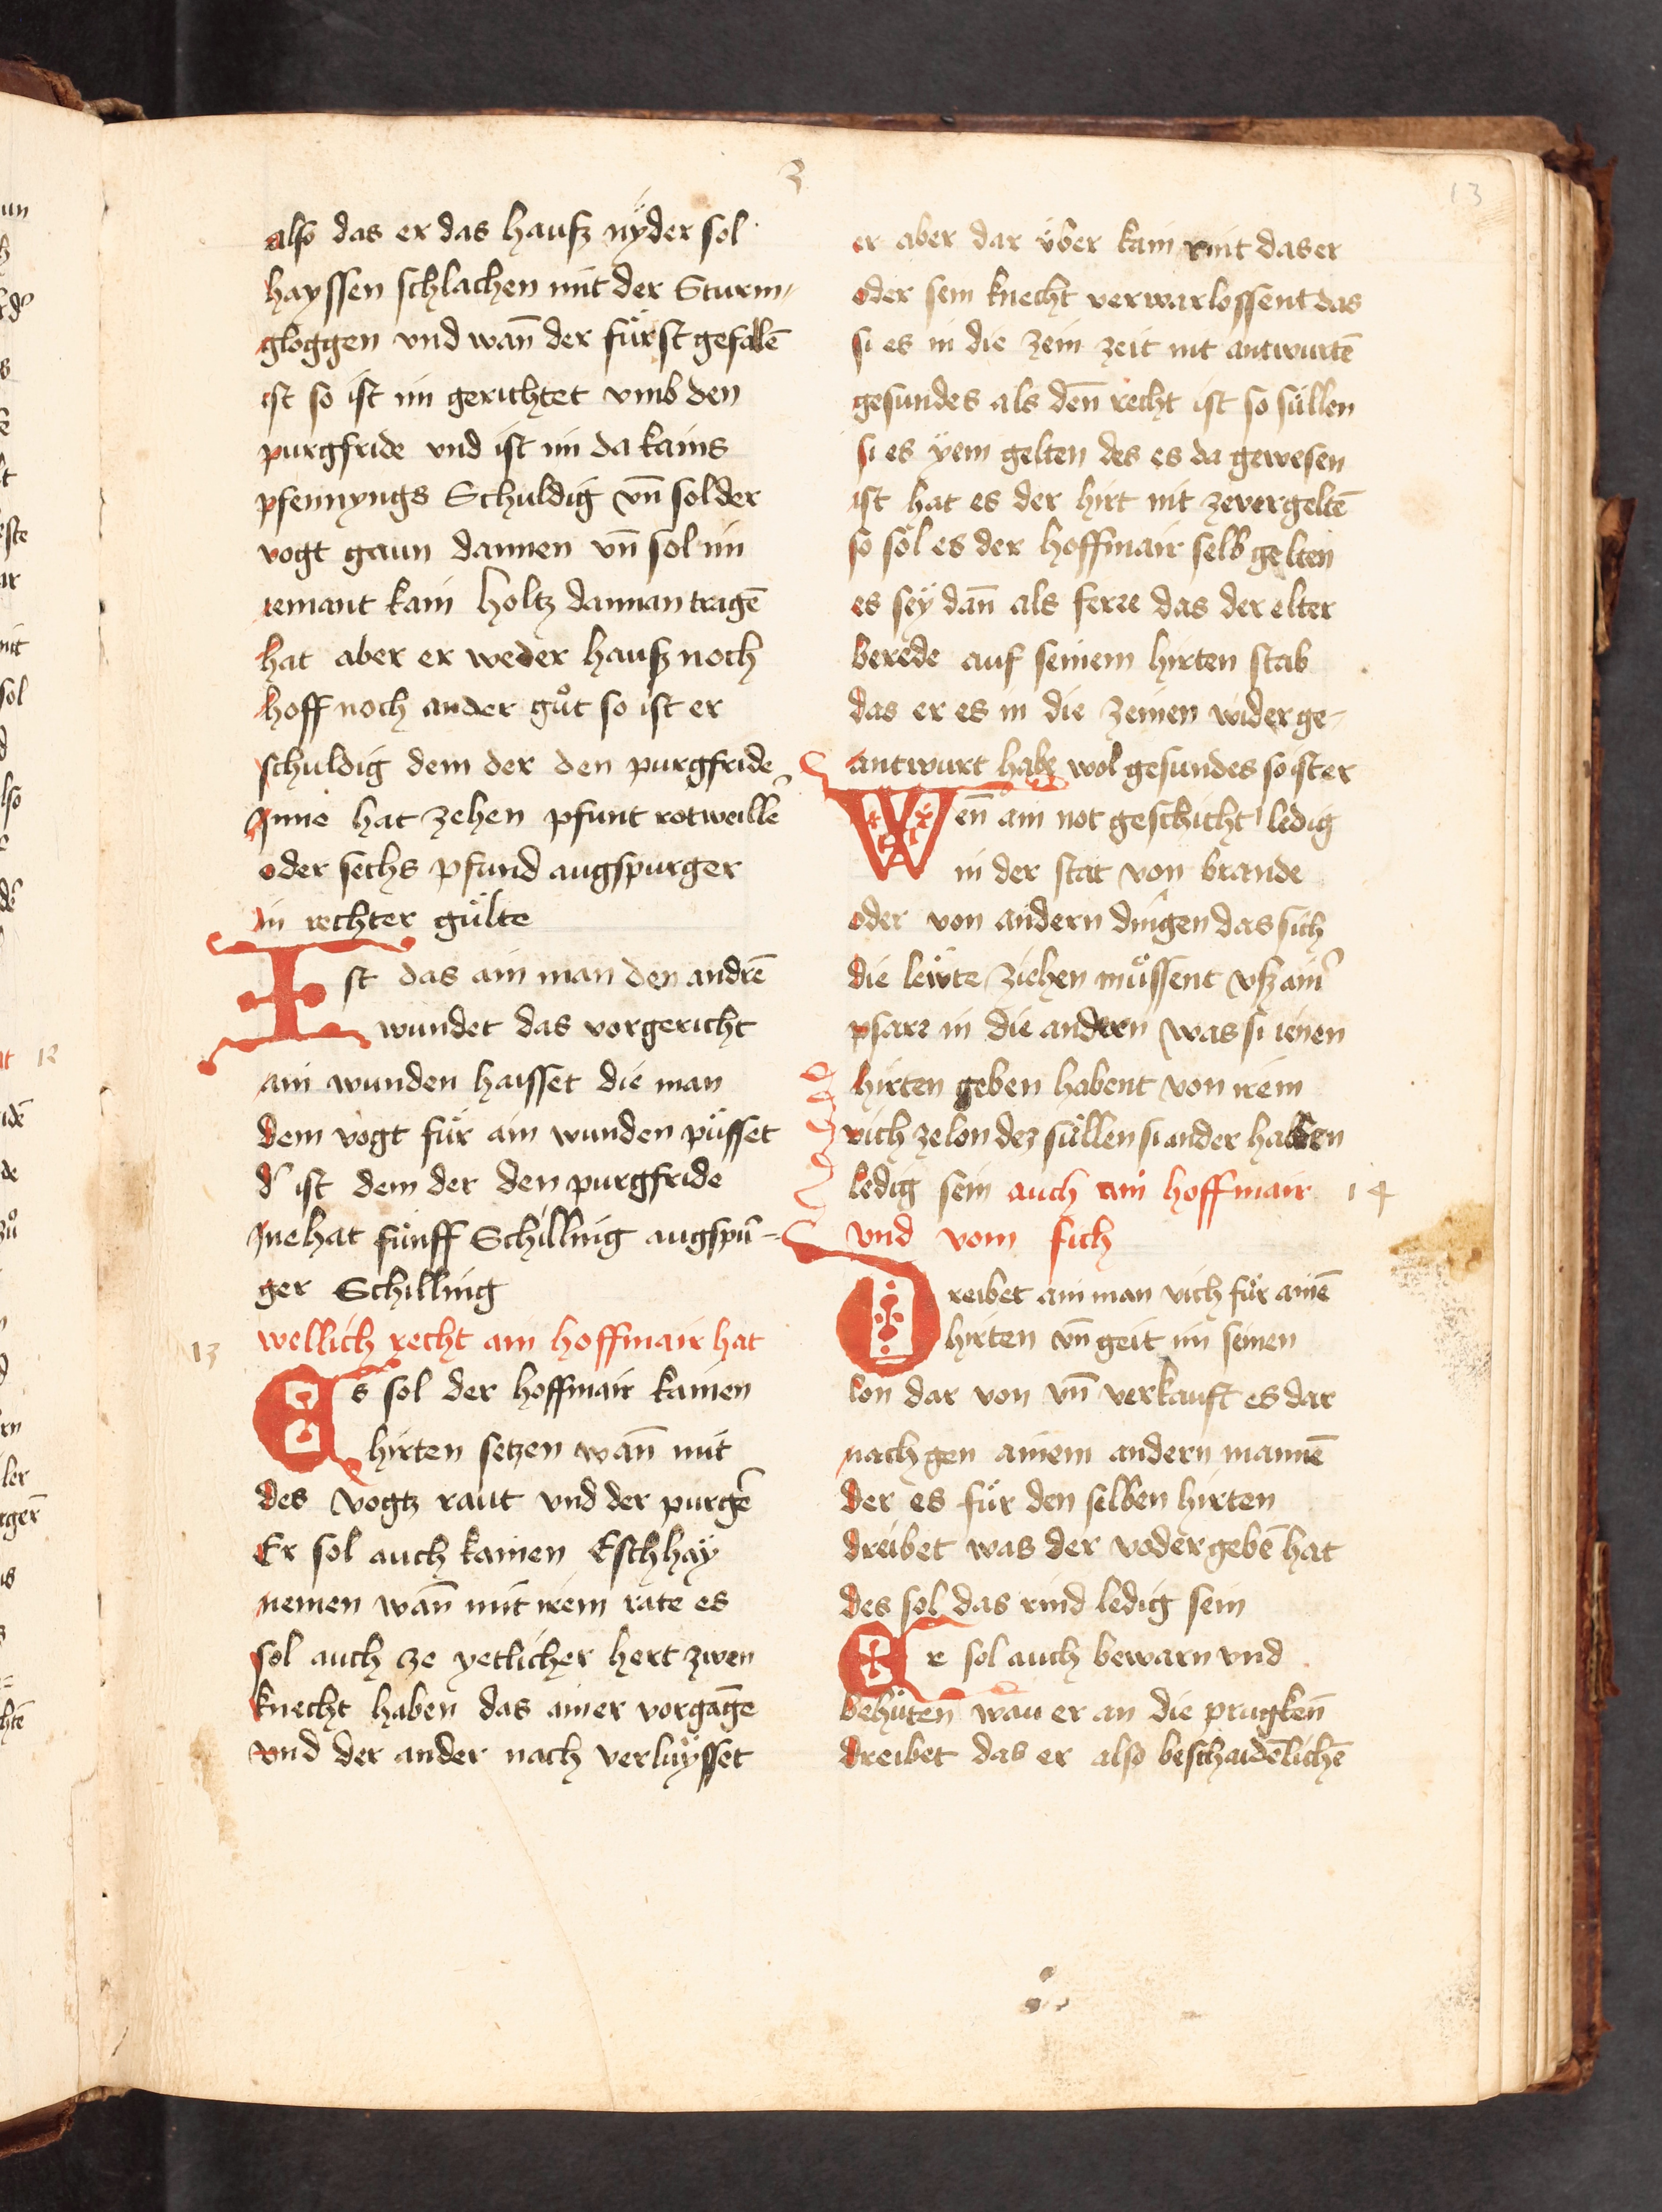 3
13
also das er das hausz nÿder sol
hayssen schlachen mit der Sturm-
gloggen vnd wan̄ der fürst gefalē
ist so ist im gerichtet vmb den
purgfride vnd ist im da kains
pfennyngs Schuldig vn̄ sol der
vogt gaun dannen vn̄ sol im
iemant kain holtz dannan tragē
hat aber er weder hausz noch
hoff noch ander gůt so ist er
schuldig dem der den purgfride
Inne hat zehen pfunt rotweillē
oder sechs pfund augspurger
in rechter gülte
Ist das ain man den andrē
wundet das vorgericht
ain wunden haisset die man
dem vogt für ain wunden püsset
d' ist dem der den purgfride
Ine hat fünff Schilling augspū-
ger Schilling
13
wellich recht ain hoffmair hat
Es sol der hoffmair kainen
hirten setzen wan̄ mit
des vogtz raut vnd der purgē
Er sol auch kainen Eschhaÿ
nemen wan̄ mit irem rate es
sol auch ze yetlicher hert zwen
knecht haben das ainer vorgāge
vnd der ander nach verluÿsset
er aber dar über kain rint das er
oder sein knecht verwarlossent das
si es in die zein zeit nit antwurtē
gesundes als den̄ recht ist so süllen
si es yem gelten des es da gewesen
ist hat es der hirt nit zevergeltē
so sol es der hoffmair selb gelten
es seÿ dan̄ als ferre das der elter
berede auf seinem hirten stab
das er es in die zeinen widerge-
antwurt habe wol gesundes so ist er
Wen̄ ain not geschicht ledig
in der stat von brande
oder von andern dingen das sich
die lewte ziehen müssent vsz ain'
pfarr in die andern was si ienen
hirten geben habent von irem
vich ze lon dez süllen si ander halben
ledig sein auch ain hoffmair
14
vnd vom fich
Dreibet ain man vich für ainē
hirten vn̄ geit im seinen
lon dar von vn̄ verkauft es dar
nach gen ainem andern mannē
der es für den selben hirten
dreibet was der voder gebē hat
des sol das rind ledig sein
Er sol auch bewarn vnd
behüten wan er an die pruglken̄
dreibet das er also beschaidēlichē